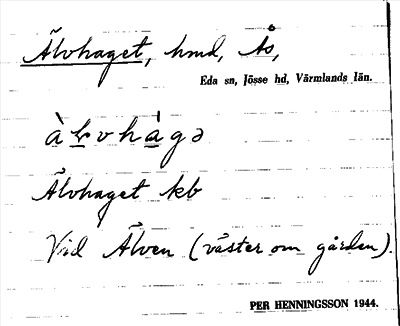 Älvhaget, hmd, Ås,
Eda sn, Jösse hd, Värmlands län.
Älvhaget kb
Vid Älven (väster om gården).
PER HENNINGSSON 1944.